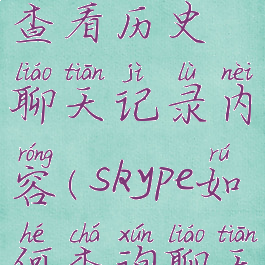 查看历史
liáo tiān jì lù nèi
聊天记录内
róng rú
容(skype如
hé chá xún liáo tiān
何查询聊天